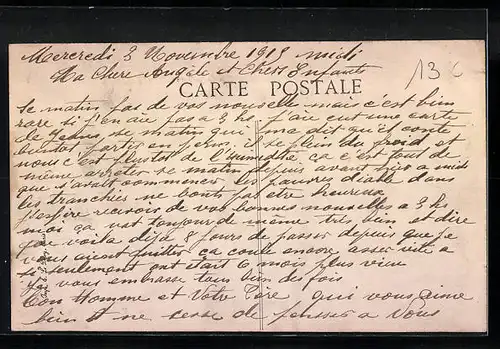 Mercredi 3 Novembre 1915 midi
Ma Chere Angele et Chers Enfants
13
CARTE POSTALE
Se matin pas de vos nouvelle mais c'est bien
rare si j'en aie pas a 3 hs j'aie eut une carte
de se matin qui ma dit qu'il conte
bientot partir en perm. il se plein du froid et
nous c'est plustot de l'umidhe ca c'est tout de
même arreter se matin depuis avant hier a midi
que s'avait commencer les pauvre diable dans
les tranchées ne vont pas etre heureux
j'espère recevoir de vos bonnes nouvelle a 3 hs
moi ça vat toujour de même tres bien et dire
que voila dejà 8 jours de passer depuis que je
vous aient quitter ça coule encore asser vite a
si seulement ont etait 6 mois plus vieux
Je vous embrasse tous bien des fois
Ton Homme et Votre Père qui vous aime
bien et ne cesse de pensser a Vous